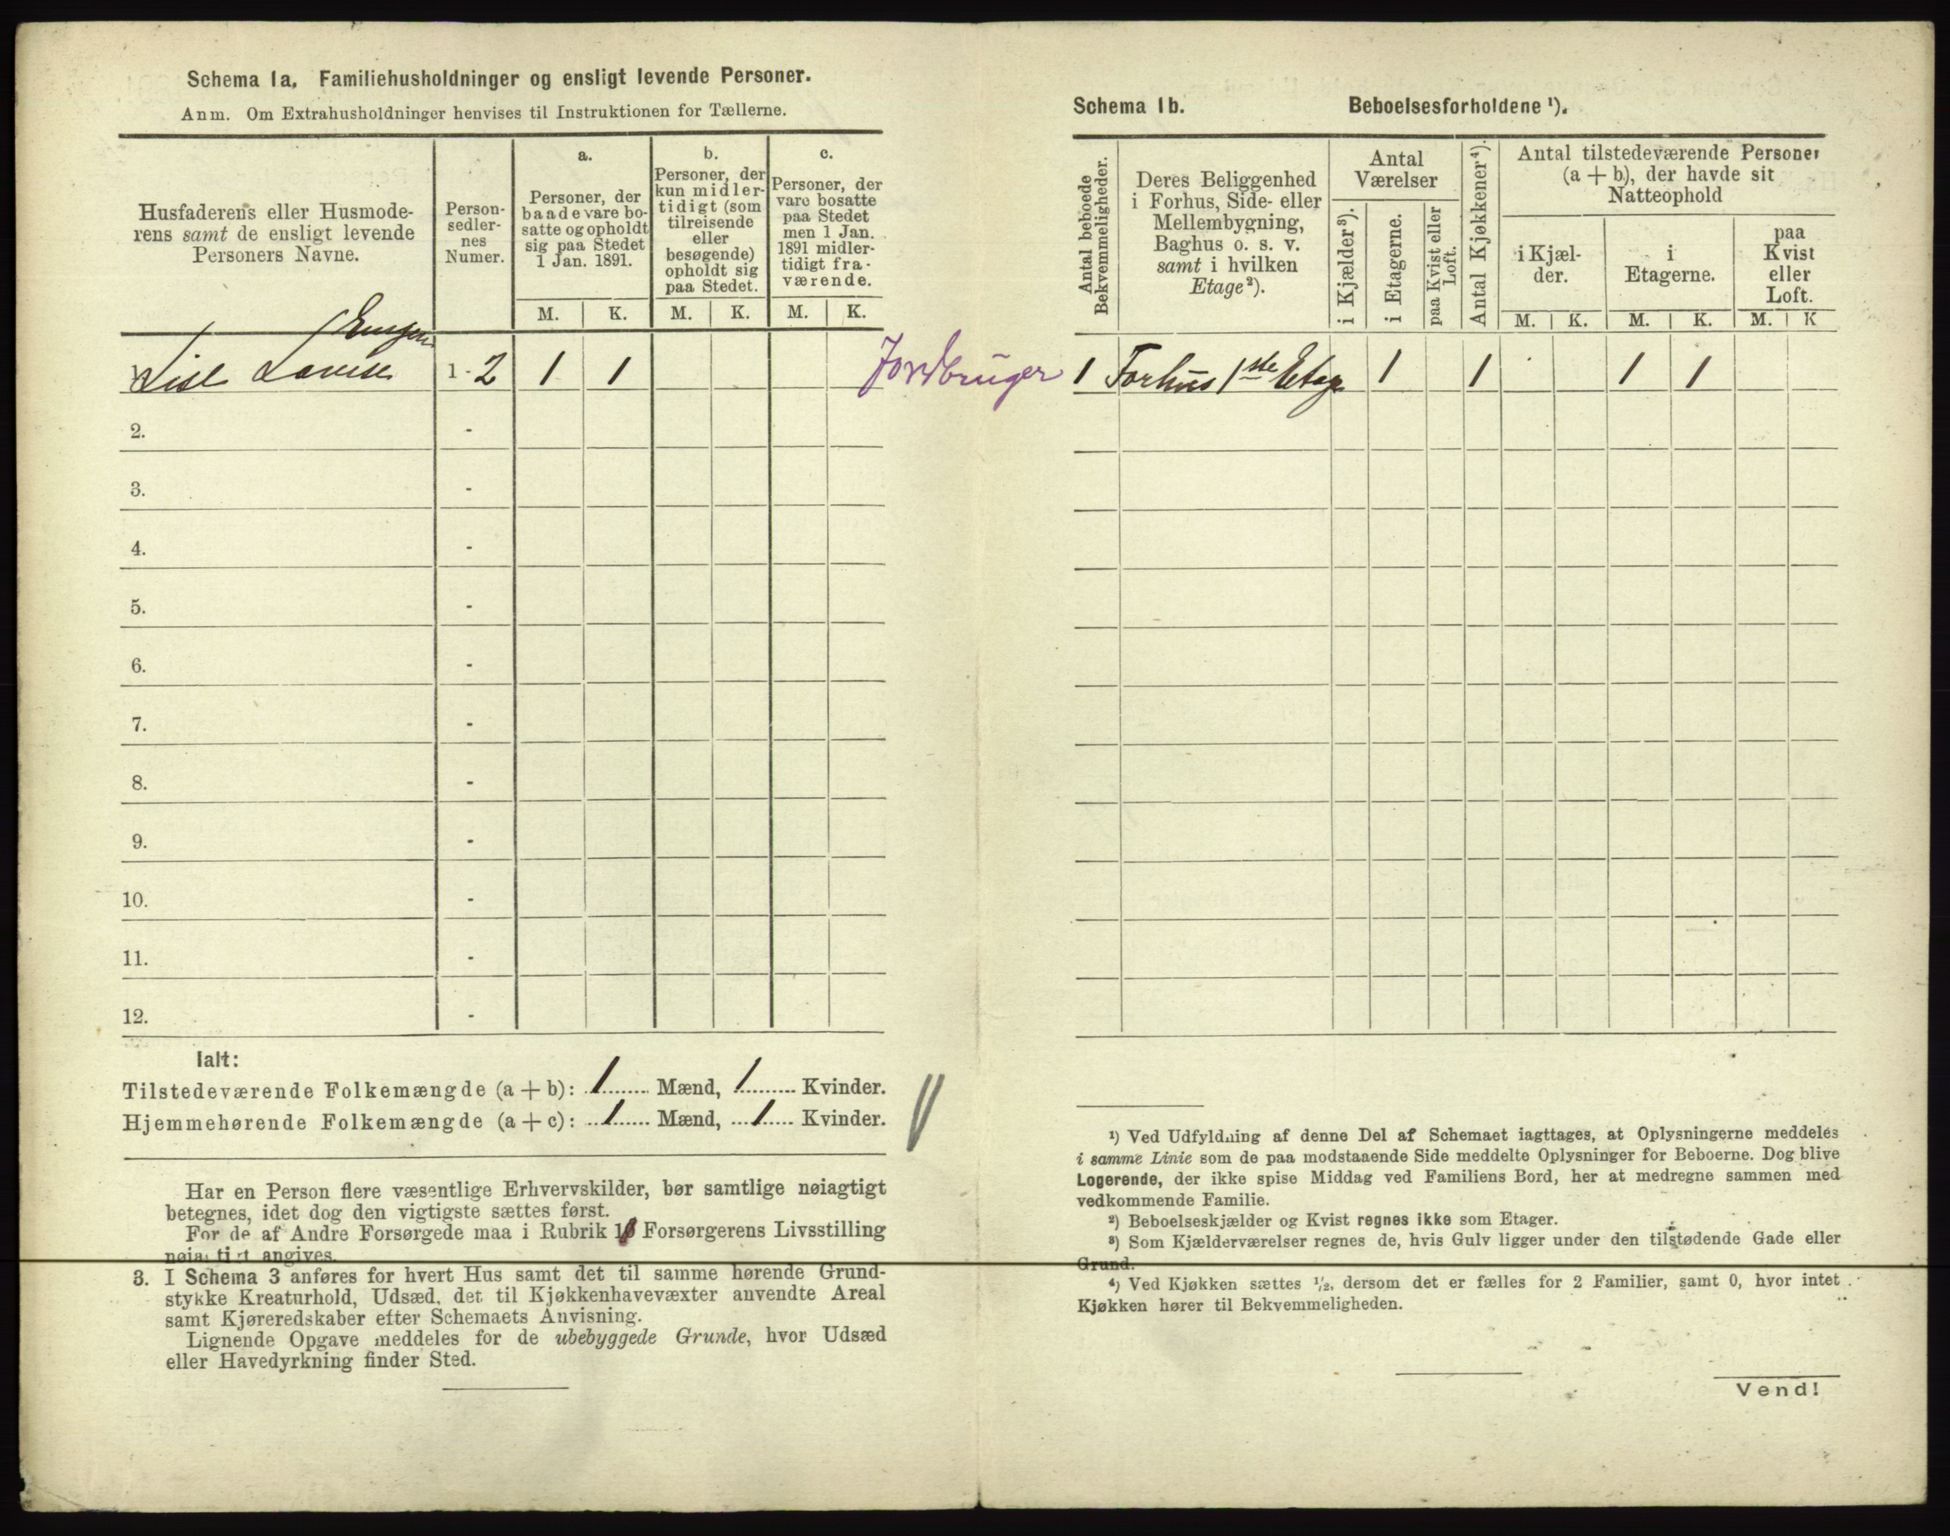 Schema 1a. Familiehusholdninger og ensligt levende Personer.
Anm. Om Extrahusholdninger henvises til Instruktionen for Tællerne.
Husfaderens eller Husmode-
rens samt de ensligt levende
Personers Navne.
Person-
sedler-
nes
Numer.
a.
Personer, der
baade vare bo-
satte og opholdt
sig paa Stedet
1 Jan. 1891.
b.
Personer, der
kun midler-
tidigt (som
tilreisende
eller
besøgende)
opholdt sig
paa Stedet.
c.
Personer, der
vare bosatte
paa Stedet
men 1 Jan.
1891 midler-
tidigt fra-
værende.
M. K. M. K. M. K.
Lovise 1 - 2 1 1 Jordbruger
2. -
3. -
4. -
5. -
6. -
7. -
8. -
9. -
10. -
11. -
12. -
Ialt:
Tilstedeværende Folkemængde (a + b): 1 Mænd, 1 Kvinder.
Hjemmehørende Folkemængde (a + c): 1 Mænd, 1 Kvinder.
Har en Person flere væsentlige Erhvervskilder, bør samtlige nøiagtigt
betegnes, idet dog den vigtigste sættes først.
For de af Andre Forsørgede maa i Rubrik Forsørgerens Livsstilling
nøiagtigt angives.
3. I Schema 3 anføres for hvert Hus samt det til samme hørende Grund-
stykke Kreaturhold, Udsæd, det til Kjøkkenhavevæxter anvendte Areal
samt Kjøreredskaber efter Schemaets Anvisning.
Lignende Opgave meddeles for de ubebyggede Grunde, hvor Udsæd
eller Havedyrkning finder Sted.
Schema 1b. Beboelsesforholdene ¹).
Antal beboede
Bekvemmeligheder.
Deres Beliggenhed
i Forhus, Side- eller
Mellembygning,
Baghus o. s. v.
samt i hvilken
Etage²).
Antal
Værelser
i Kjælder³).
i Etagerne.
paa Kvist eller
Loft.
Antal Kjøkkener⁴).
Antal tilstedeværende Personer
(a + b), der havde sit
Natteophold
i Kjæl-
der.
i
Etagerne.
paa
Kvist
eller
Loft.
M. K. M. K. M. K
1 Forhus 1ste Etage 1 1 1 1
¹) Ved Udfyldning af denne Del af Schemaet iagttages, at Oplysningerne meddeles
i samme Linie som de paa modstaaende Side meddelte Oplysninger for Beboerne. Dog blive
Logerende, der ikke spise Middag ved Familiens Bord, her at medregne sammen med
vedkommende Familie.
²) Beboelseskjælder og Kvist regnes ikke som Etager.
³) Som Kjælderværelser regnes de, hvis Gulv ligger under den tilstødende Gade eller
Grund.
⁴) Ved Kjøkken sættes ½, dersom det er fælles for 2 Familier, samt 0, hvor intet
Kjøkken hører til Bekvemmeligheden.
Vend!